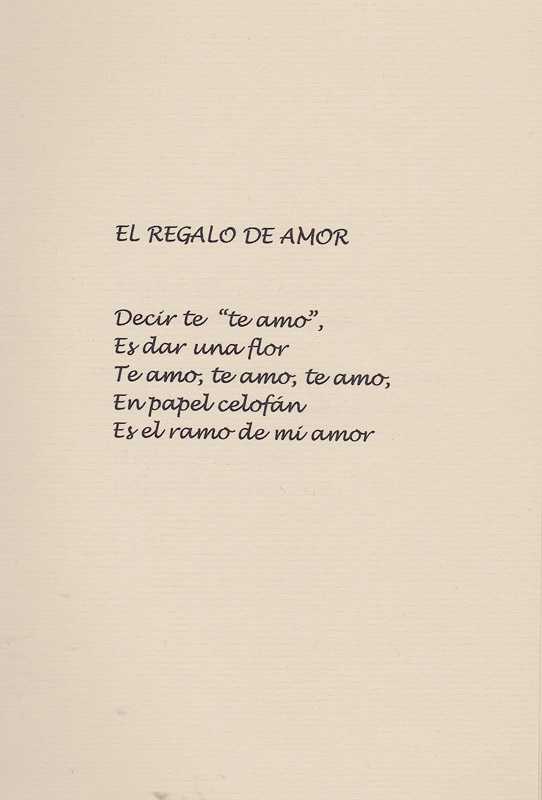 EL REGALO DE AMOR
Decir te “te amo”,
Es dar una flor
Te amo, te amo, te amo,
En papel celofán
Es el ramo de mi amor